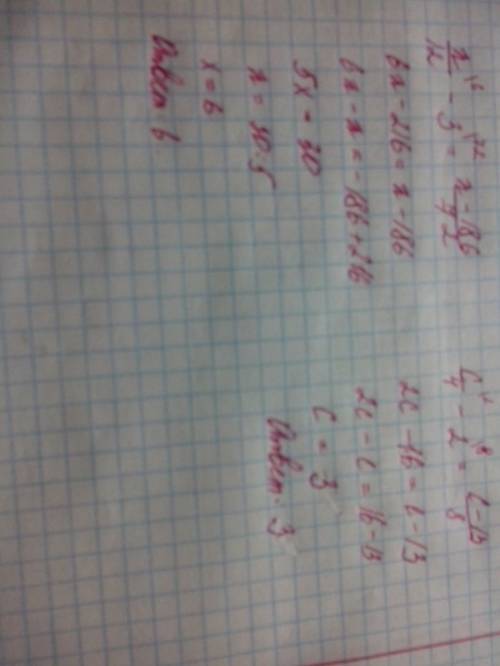 x/12 \6 - 3 \72 = x-186/72
6x - 216 = x - 186
6x - x = -186 + 216
5x = 30
x = 30:5
x = 6
Ответ: 6
c/4 \2 - 2 \8 = c-13/8
2c - 16 = c - 13
2c - c = 16 - 13
c = 3
Ответ: 3